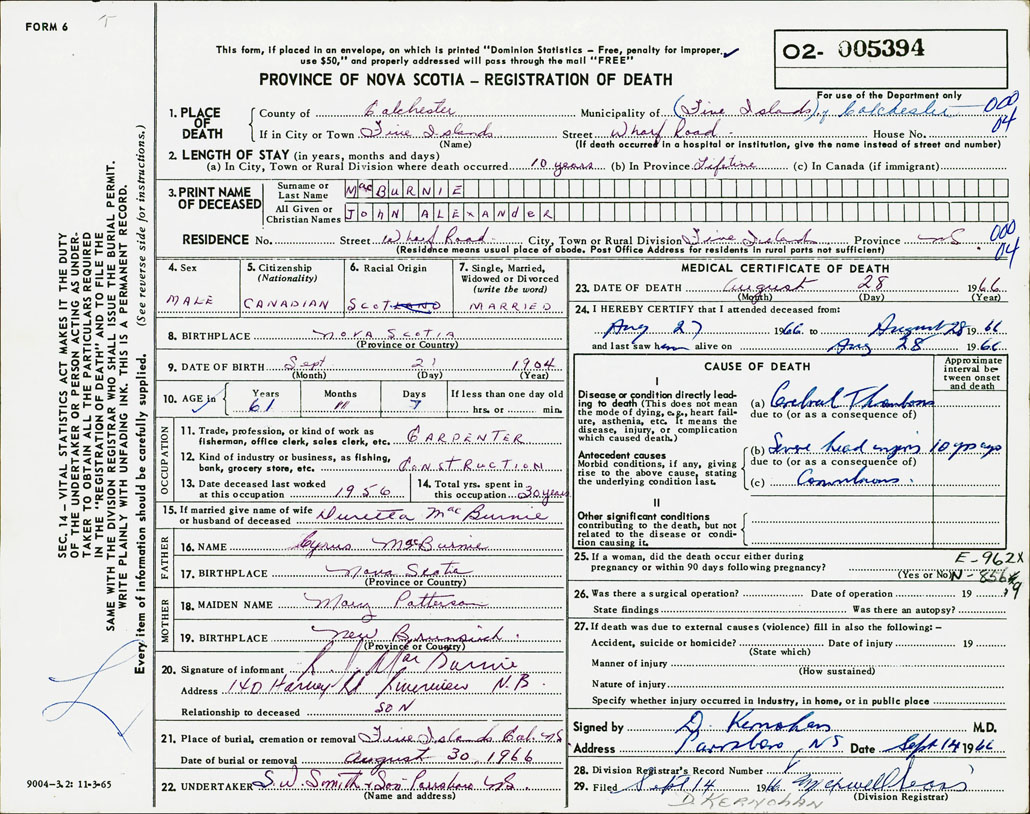 FORM 6
This form, if placed in an envelope, on which is printed "Dominion Statistics – Free, penalty for improper
use $50," and properly addressed will pass through the mail "FREE"
PROVINCE OF NOVA SCOTIA – REGISTRATION OF DEATH
02- 005394
For use of the Department only
SEC. 14 – VITAL STATISTICS ACT MAKES IT THE DUTY
OF THE UNDERTAKER OR PERSON ACTING AS UNDER-
TAKER TO OBTAIN ALL THE PARTICULARS REQUIRED
IN THE "REGISTRATION OF DEATH" AND TO FILE THE
SAME WITH THE DIVISION REGISTRAR WHO SHALL ISSUE THE BURIAL PERMIT.
WRITE PLAINLY WITH UNFADING INK. THIS IS A PERMANENT RECORD.
Every item of information should be carefully supplied. (See reverse side for instructions.)
1. PLACE OF DEATH County of Colchester Municipality of (Five Islands) Colchester 000
If in City or Town Five Islands Street Wharf Road House No. 04
(Name) (If death occurred in a hospital or institution, give the name instead of street and number)
2. LENGTH OF STAY (in years, months and days)
(a) In City, Town or Rural Division where death occurred 10 years (b) In Province Lifetime (c) In Canada (if immigrant)
3. PRINT NAME OF DECEASED Surname or Last Name MacBURNIE
All Given or Christian Names JOHN ALEXANDER
RESIDENCE No. Street Wharf Road City, Town or Rural Division Five Islands Province NS 000
(Residence means usual place of abode. Post Office Address for residents in rural parts not sufficient) 04
4. Sex 5. Citizenship (Nationality) 6. Racial Origin 7. Single, Married, Widowed or Divorced (write the word)
MALE CANADIAN SCOTLAND MARRIED
8. BIRTHPLACE NOVA SCOTIA
(Province or Country)
9. DATE OF BIRTH Sept 21 1904
(Month) (Day) (Year)
10. AGE in Years Months Days If less than one day old
61 11 7 hrs. or min.
OCCUPATION
11. Trade, profession, or kind of work as fisherman, office clerk, sales clerk, etc. CARPENTER
12. Kind of industry or business, as fishing, bank, grocery store, etc. CONSTRUCTION
13. Date deceased last worked at this occupation 1956 14. Total yrs. spent in this occupation 30 years
15. If married give name of wife or husband of deceased Duretta MacBurnie
FATHER
16. NAME Cyrus MacBurnie
17. BIRTHPLACE Nova Scotia
(Province or Country)
MOTHER
18. MAIDEN NAME Mary Patterson
19. BIRTHPLACE New Brunswick
(Province or Country)
20. Signature of informant MacBurnie
Address 140 Harvey St Riverview N.B.
Relationship to deceased SON
21. Place of burial, cremation or removal Five Islands Col. NS
Date of burial or removal August 30, 1966
22. UNDERTAKER S.W. Smith & Son Parrsboro NS
(Name and address)
MEDICAL CERTIFICATE OF DEATH
23. DATE OF DEATH August 28 1966
(Month) (Day) (Year)
24. I HEREBY CERTIFY that I attended deceased from:
Aug 27 1966 to August 28 1966
and last saw him alive on Aug 28 1966
CAUSE OF DEATH
Approximate interval between onset and death
I
Disease or condition directly leading to death (This does not mean the mode of dying, e.g., heart failure, asthenia, etc. It means the disease, injury, or complication which caused death.)
(a) Cerebral Thrombosis
due to (or as a consequence of)
Antecedent causes
Morbid conditions, if any, giving rise to the above cause, stating the underlying condition last.
(b) Severe head injuries 10 yrs ago
due to (or as a consequence of)
(c)
II
Other significant conditions contributing to the death, but not related to the disease or condition causing it.
25. If a woman, did the death occur either during pregnancy or within 90 days following pregnancy?
(Yes or No)
E-962X
N-856
.9
26. Was there a surgical operation? Date of operation 19
State findings Was there an autopsy?
27. If death was due to external causes (violence) fill in also the following: –
Accident, suicide or homicide? Date of injury 19
(State which)
Manner of injury
(How sustained)
Nature of injury
Specify whether injury occurred in industry, in home, or in public place
Signed by D. Kernohan M.D.
Address Parrsboro, NS Date Sept 14 1966
28. Division Registrar's Record Number 7
29. Filed Sept 14 1966
(Division Registrar)
D. KERNOHAN
9004-3.2: 11-3-65